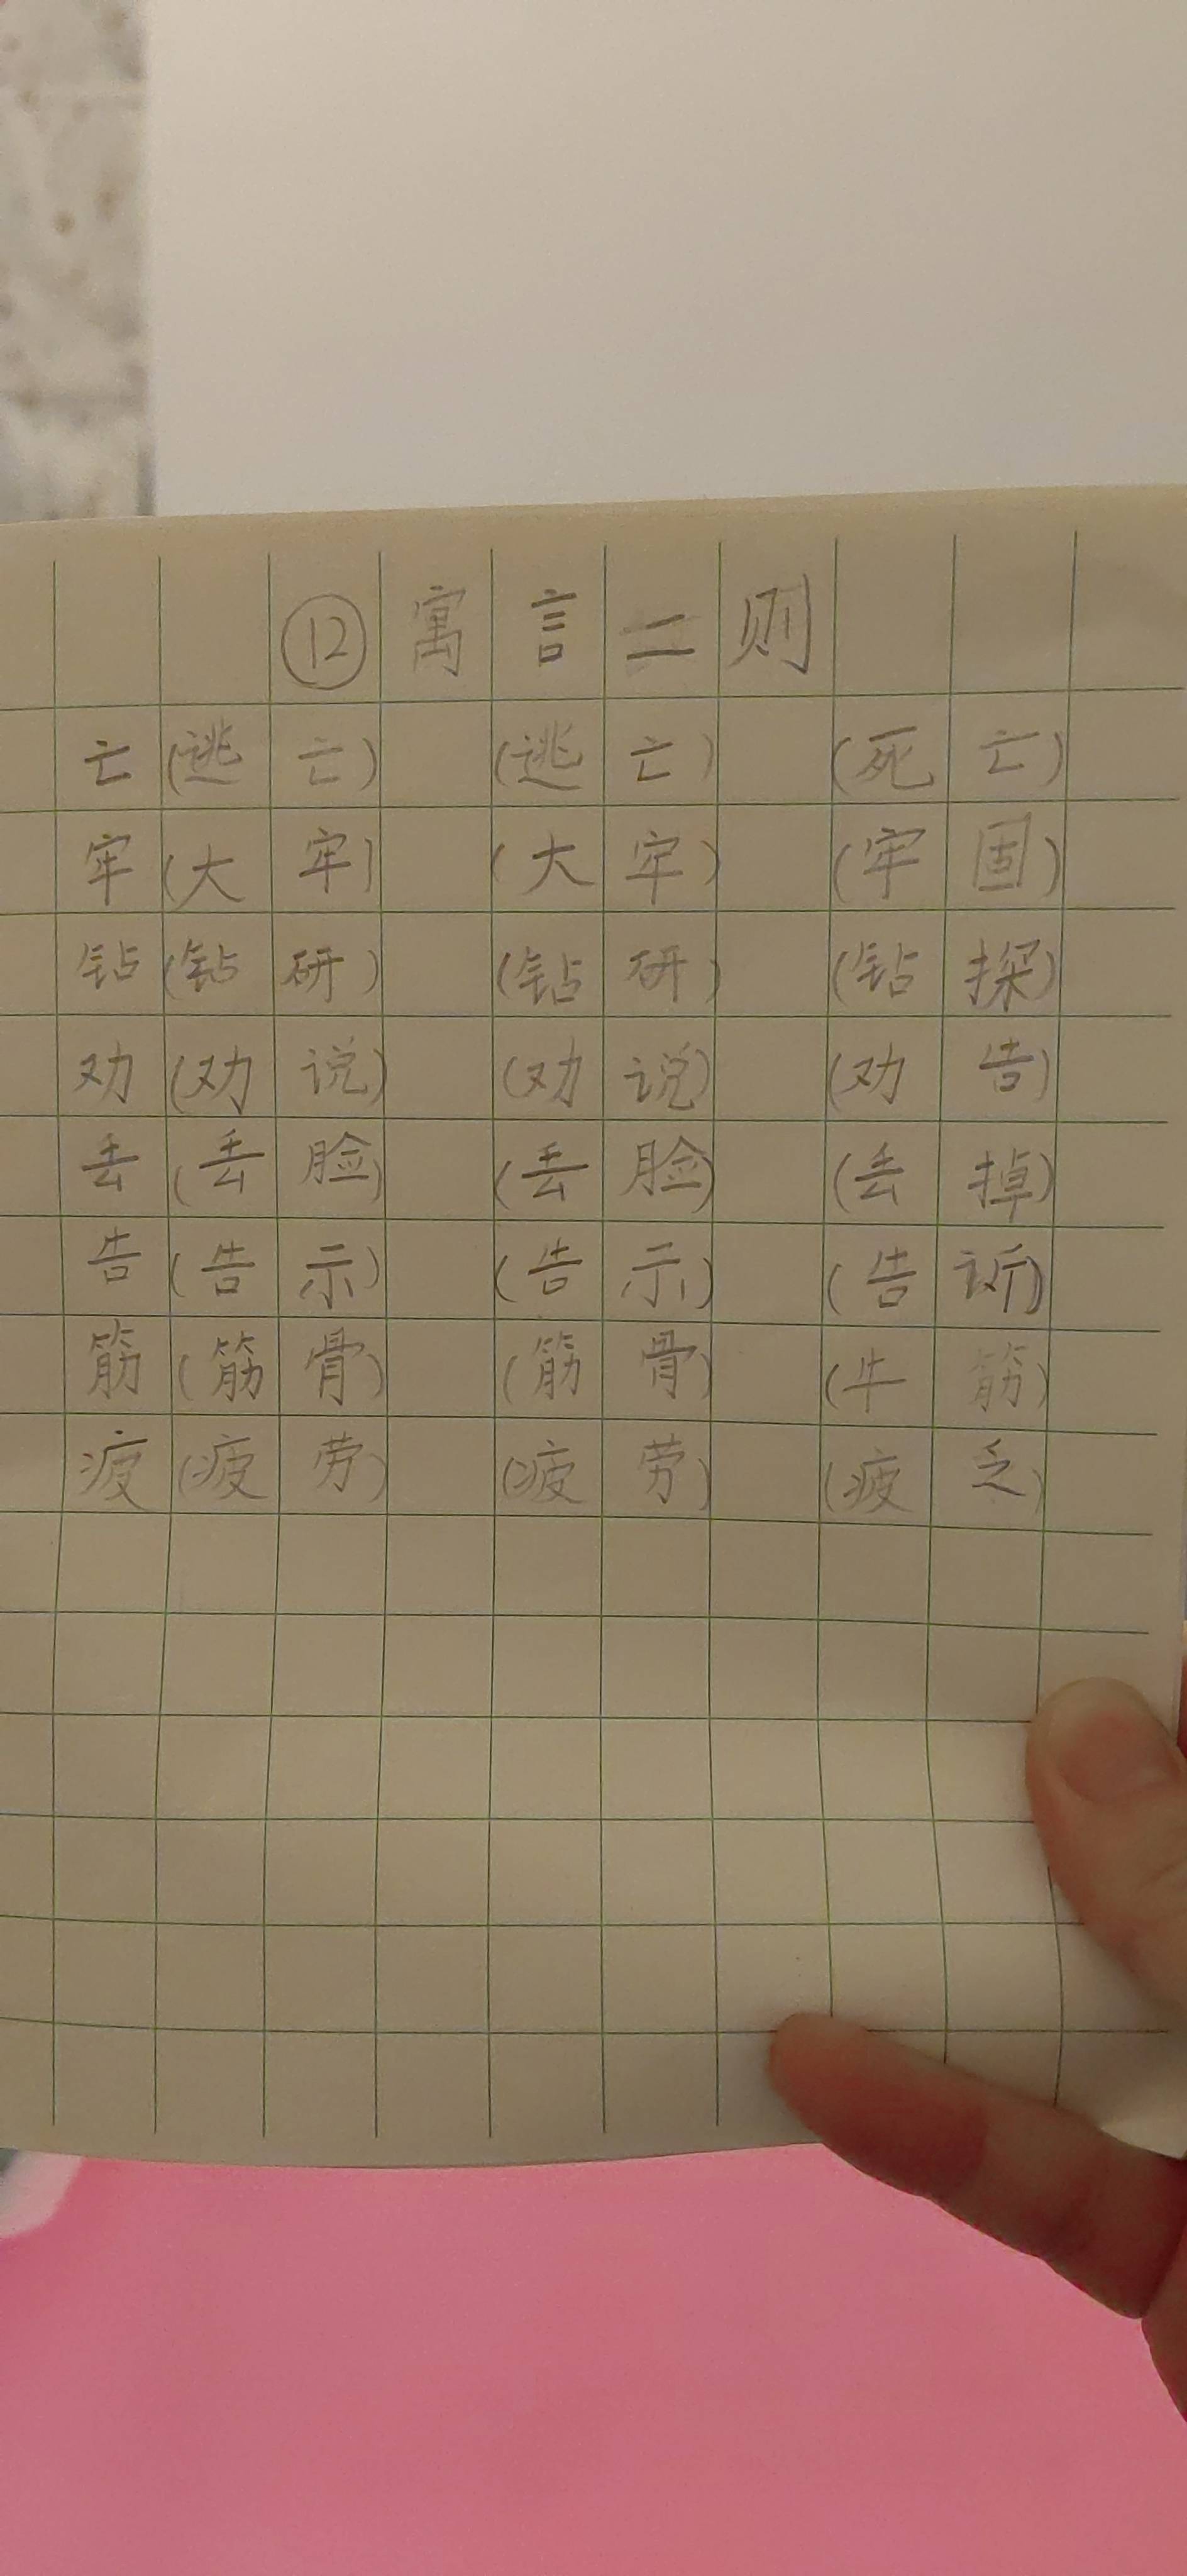 ⑫寓言二则
亡(逃亡) (逃亡) (死亡)
牢(大牢) (大牢) (牢固)
钻(钻研) (钻研) (钻探)
劝(劝说) (劝说) (劝告)
丢(丢脸) (丢脸) (丢掉)
告(告示) (告示) (告诉)
筋(筋骨) (筋骨) (牛筋)
疲(疲劳) (疲劳) (疲乏)